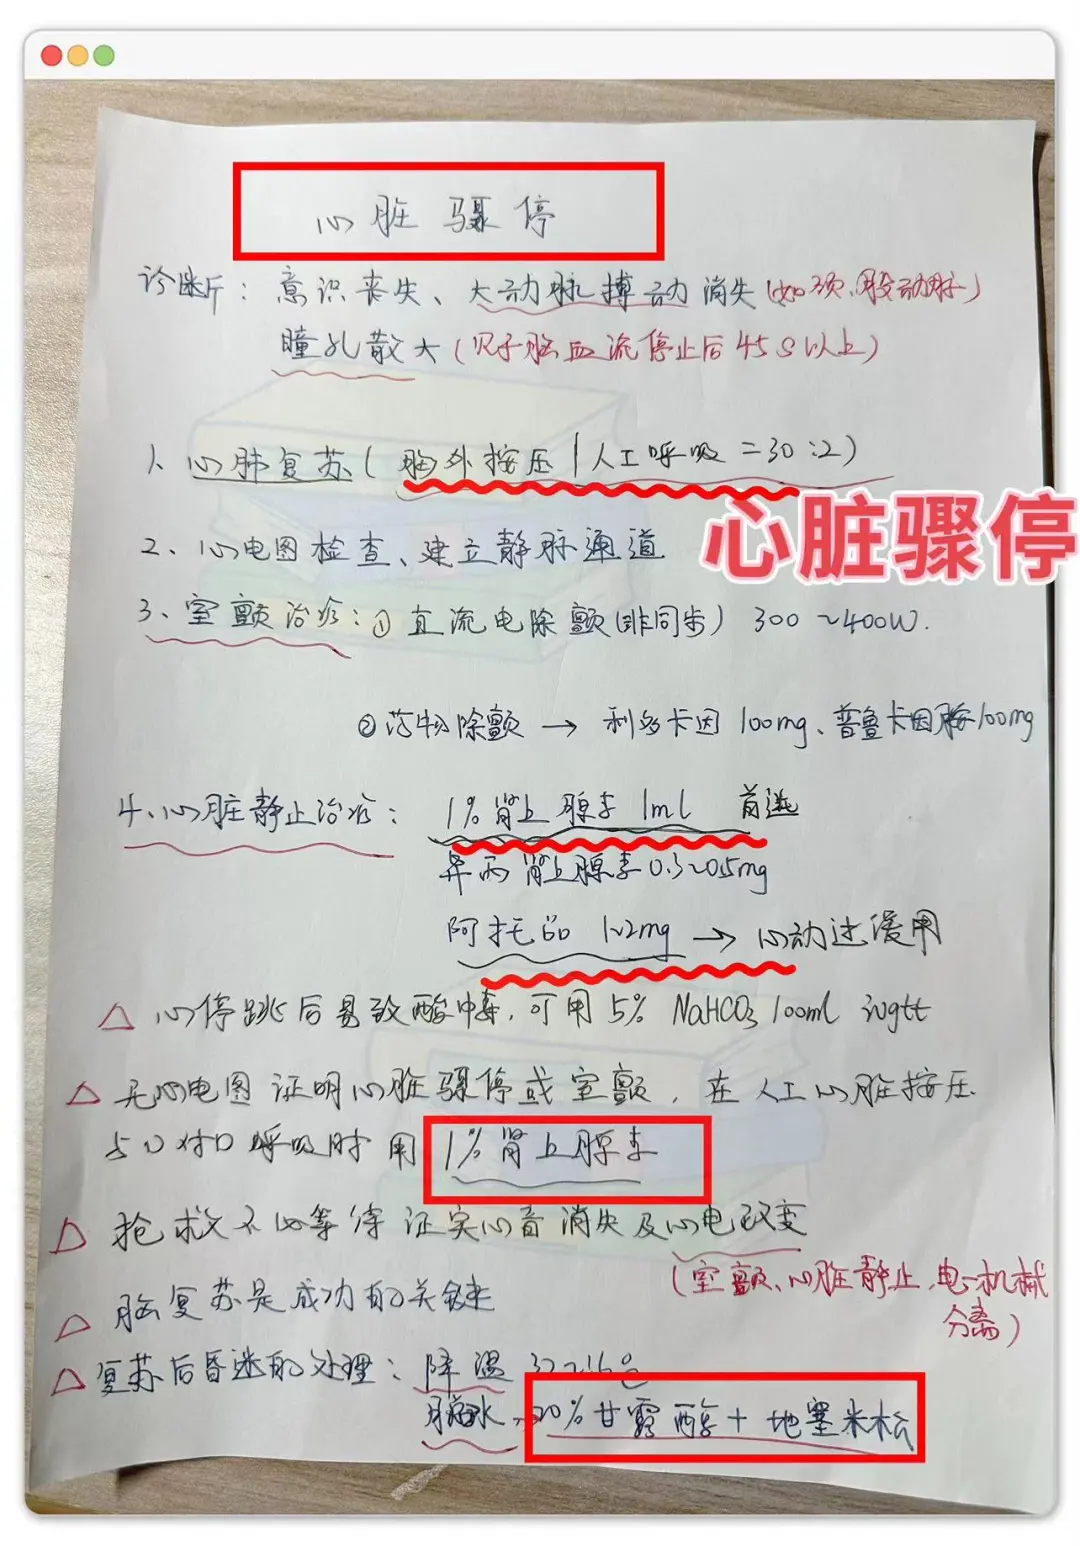 心脏骤停
诊断：意识丧失、大动脉搏动消失（如颈、股动脉）
瞳孔散大（见于脑血流停止后45S以上）
1、心肺复苏（胸外按压/人工呼吸=30:2）
心脏骤停
2、心电图检查、建立静脉通道
3、室颤治疗：①直流电除颤（非同步）300~400W.
②药物除颤→利多卡因100mg、普鲁卡因胺100mg
4、心脏静止治疗：1%肾上腺素1ml 首选
异丙肾上腺素0.5mg
阿托品1~2mg→心动过缓用
△心停跳后易致酸中毒，可用5% NaHCO3 100ml ivgtt
△无心电图证明心脏骤停或室颤，在人工心脏按压
与口对口呼吸时用1%肾上腺素
△抢救不必等待证实心音消失及心电改变
（室颤、心脏静止、电-机械
分离）
△脑复苏是成功的关键
△复苏后昏迷的处理：降温
脑水 20%甘露醇+地塞米松